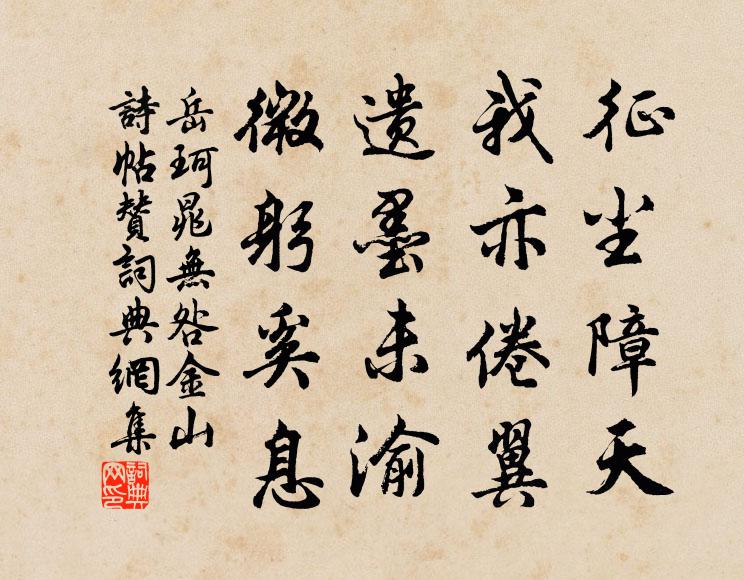 征尘障天
我亦倦翼
遗墨未渝
微躬奚息
岳珂晁無咎金山
詩帖賛詞典網集
詞典网印